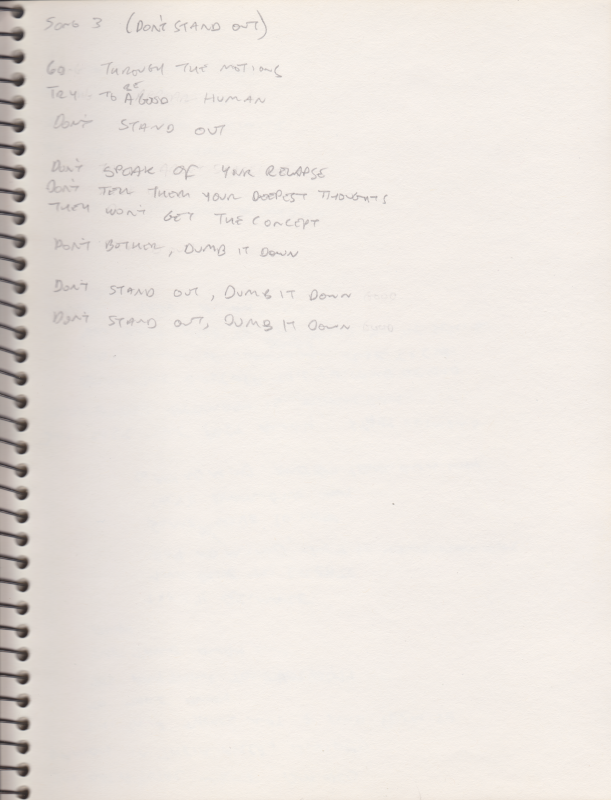 SONG 3 (DON'T STAND OUT)
GO THROUGH THE MOTIONS
TRY TO BE A GOOD HUMAN
DON'T STAND OUT
DON'T SPEAK OF YOUR RELAPSE
DON'T TELL THEM YOUR DEEPEST THOUGHTS
THEY WON'T GET THE CONCEPT
DON'T BOTHER, DUMB IT DOWN
DON'T STAND OUT, DUMB IT DOWN
DON'T STAND OUT, DUMB IT DOWN